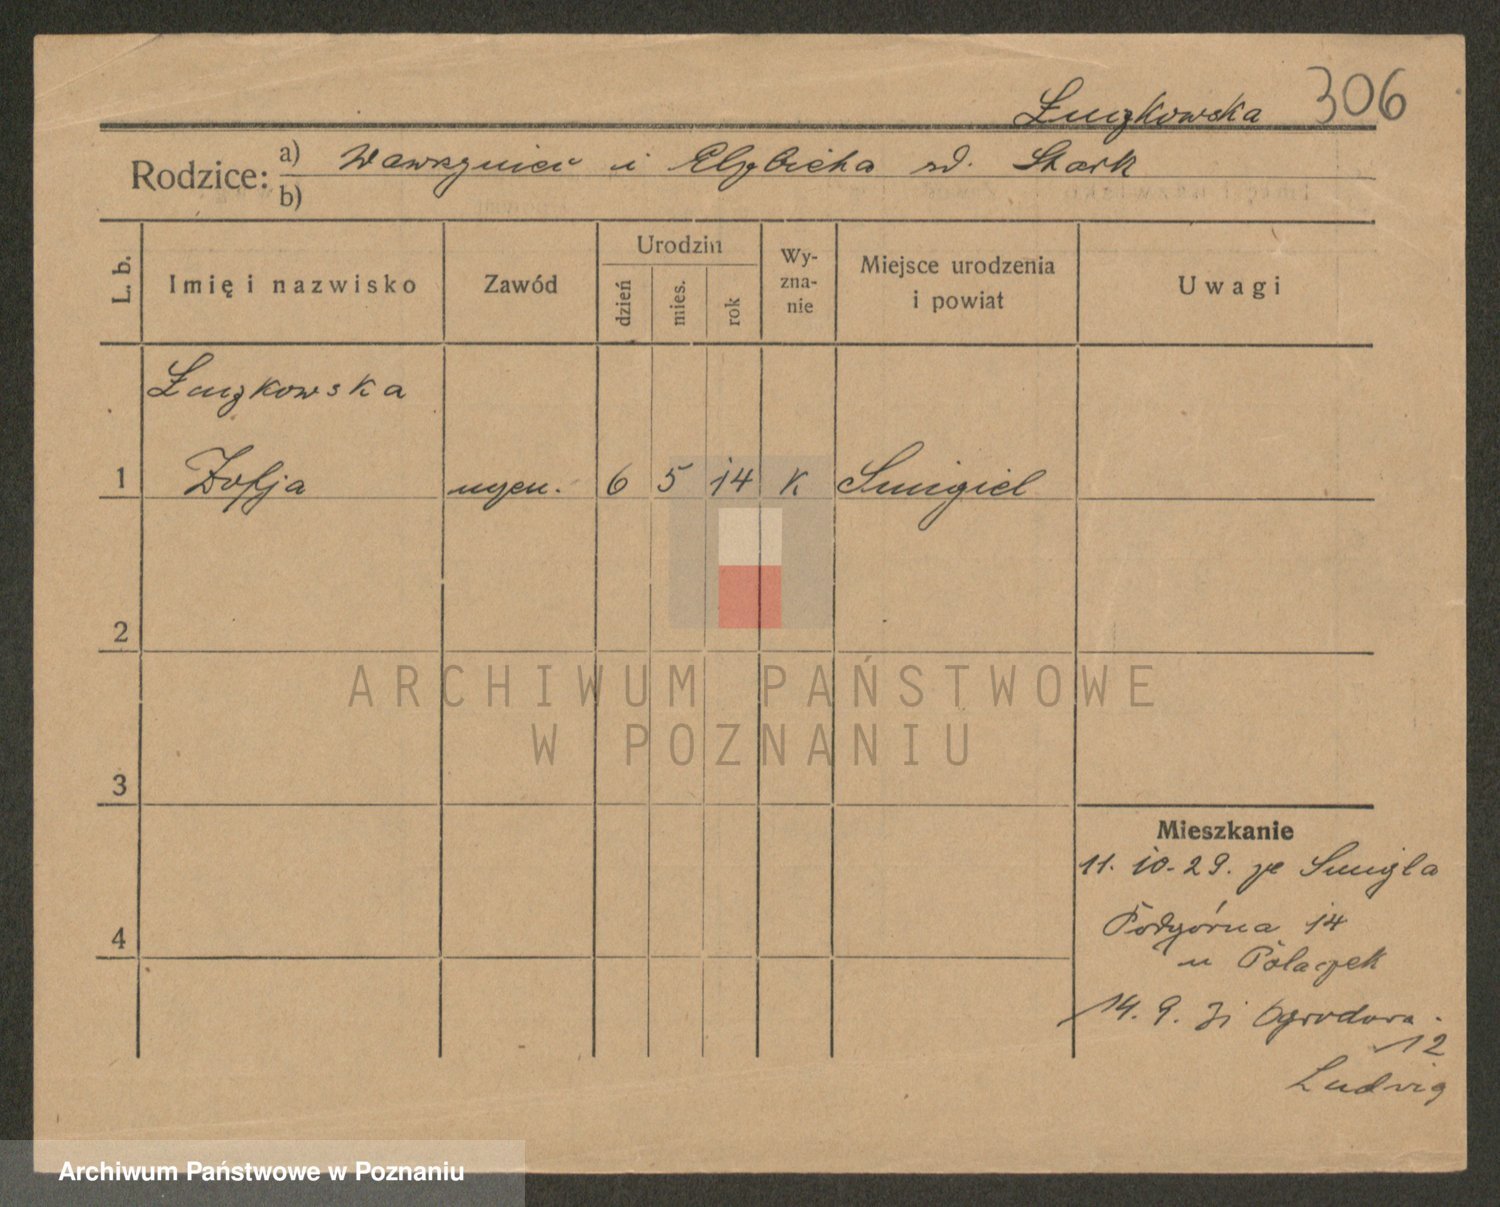 306
Łuczkowska
Rodzice: a) Wawrzyniec i Elżbieta rd. Stark
b)
L. b. Imię i nazwisko Zawód Urodzin dzień mies. rok Wy-zna-nie Miejsce urodzenia i powiat Uwagi
Łuczkowska
1 Zofja uczen. 6 5 14 K Śmigiel
2
3
4
Mieszkanie
11. 10. 29. ze Śmigla
Podgórna 14
u Polaczek
14. 9. 31 Ogrodowa
12
Ludwig
ARCHIWUM PAŃSTWOWE
W POZNANIU
Archiwum Państwowe w Poznaniu